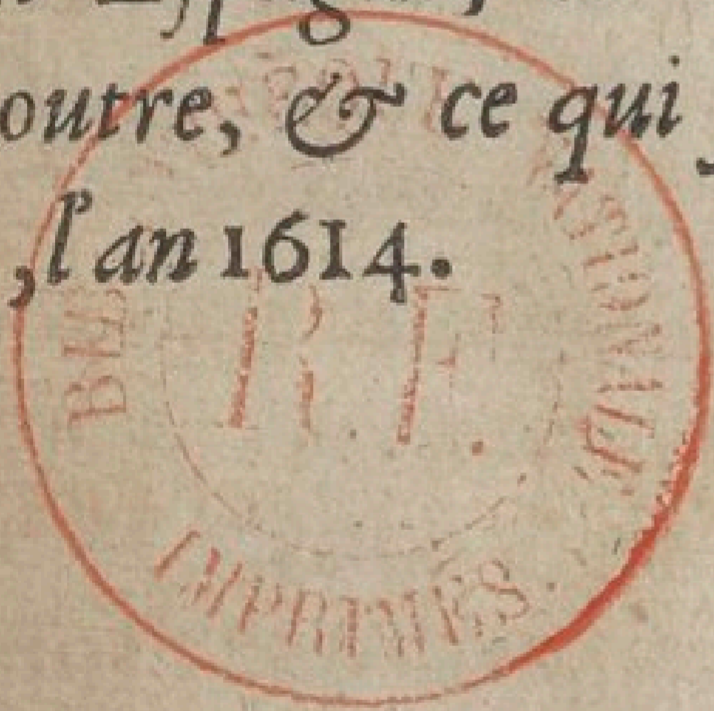 outre, & ce qui
, l'an 1614.
BIBLIOTHÈQUE NATIONALE
R.F.
IMPRIMÉS.